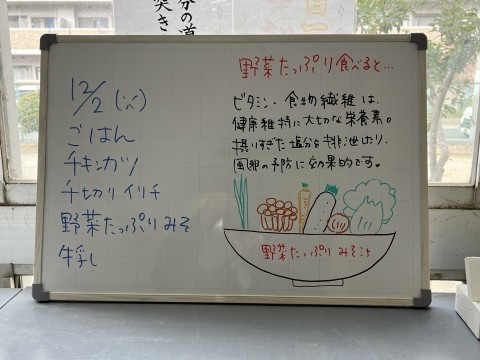 分の道
突き
12/2(

ごはん
チキンカツ
千切りイリチ
野菜たっぷりみそ
牛乳
野菜たっぷり食べると…
ビタミン・食物繊維は、
健康維持に大切な栄養素。
摂りすぎた塩分を排泄したり、
風邪の予防に効果的です。
野菜たっぷりみそ汁